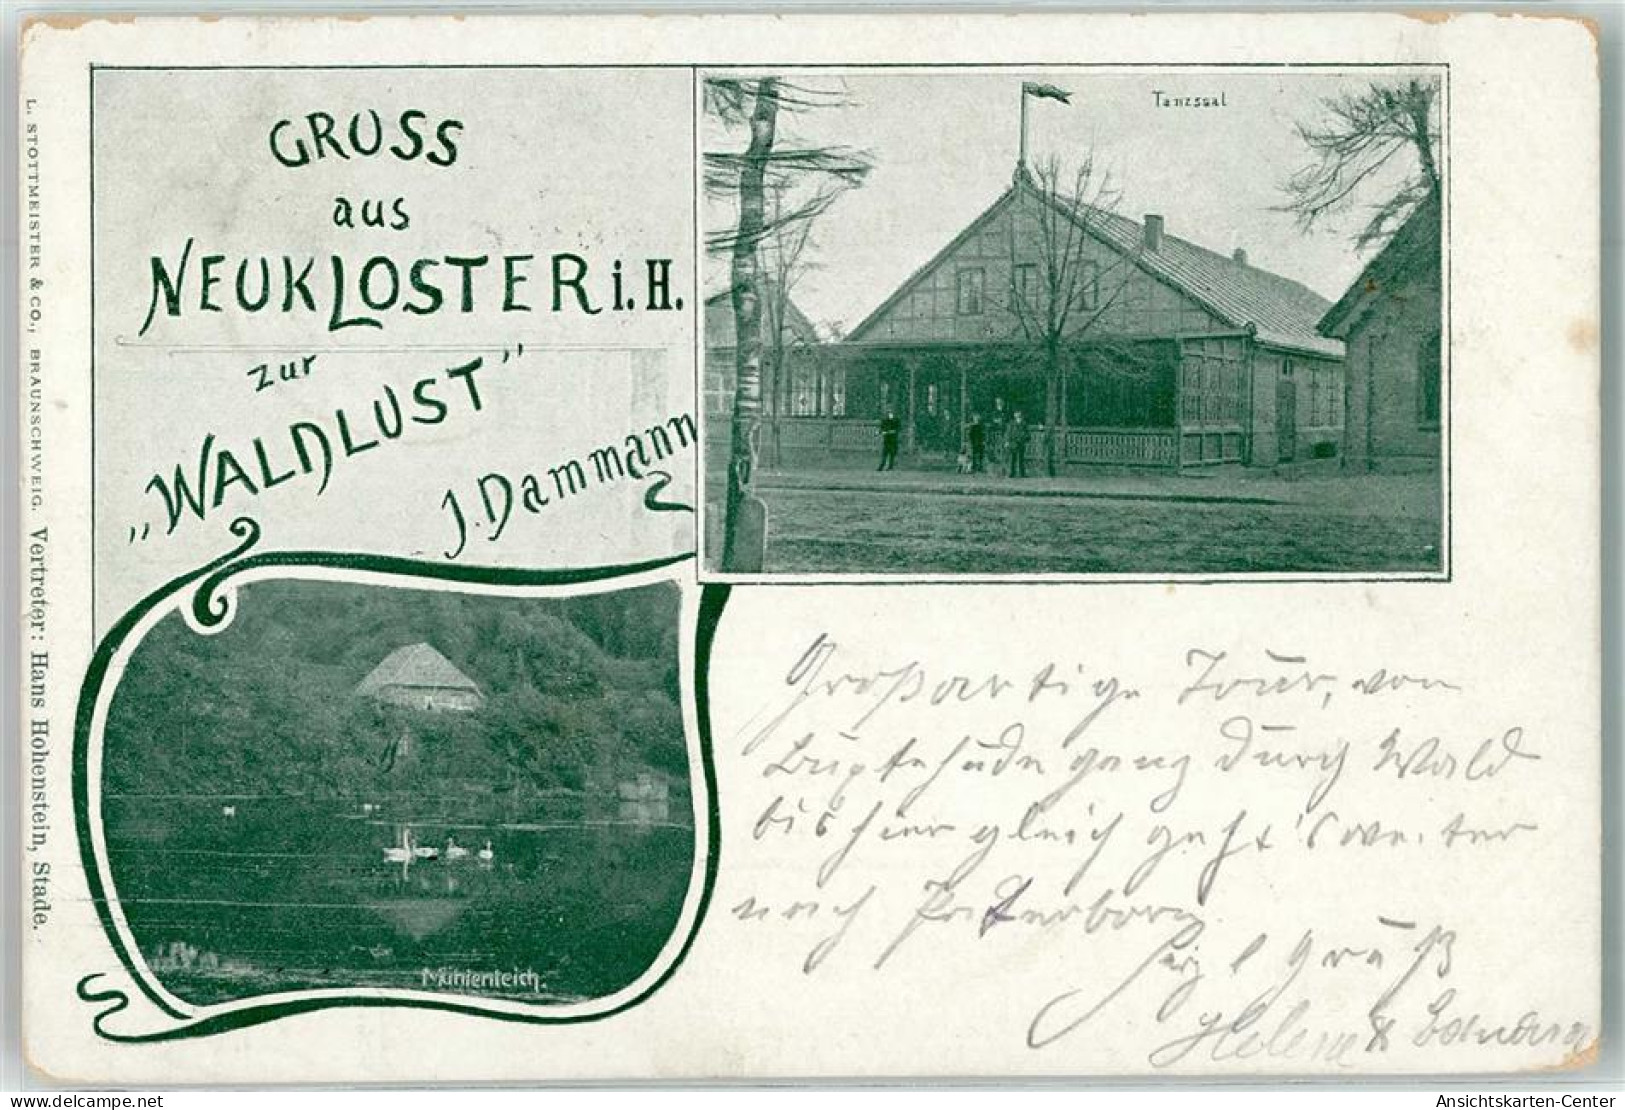 GRUSS
aus
NEUKLOSTER i. H.
zur
„WALDLUST”
J. Dammann
Tanzsaal
Mühlenteich.
L. STOTTMEISTER & CO., BRAUNSCHWEIG. Vertreter: Hans Hohenstein, Stade.
Großartige Tour, von
Buxtehude ganz durch Wald
bis hier gleich geht's weiter
nach
Gruß
Helene &
Ansichtskarten-Center
www.delcampe.net